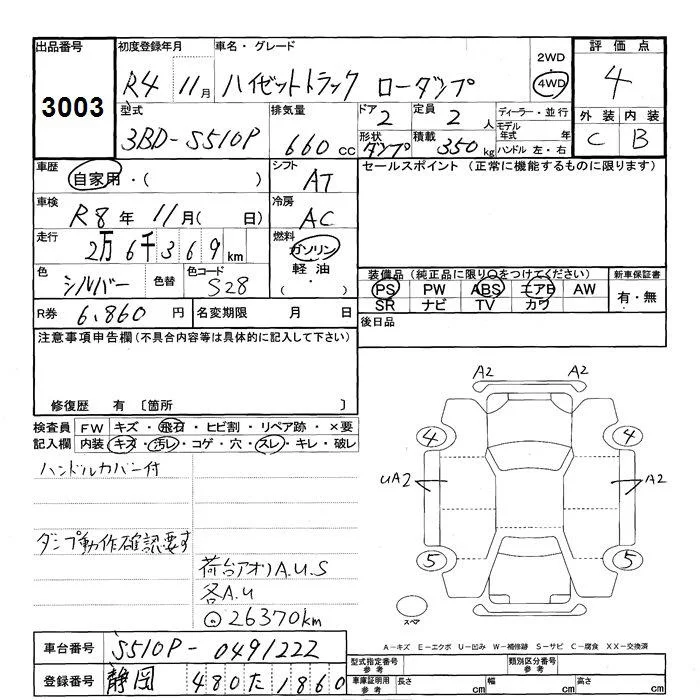 出品番号
3003
初度登録年月
R4 11月
車名・グレード
ハイゼットトラック ローダンプ
2WD
・
4WD
評価点
4
外装 内装
C B
型式
3BD-S510P
排気量
660cc
ドア
2
定員
2人
形状
ダンプ
積載
350kg
ディーラー・並行
モデル年式 年
ハンドル 左・右
車歴
自家用・( )
シフト
AT
セールスポイント (正常に機能するものに限ります)
車検
R8年 11月( 日)
冷房
AC
走行
2万6千369km
燃料
ガソリン
軽油
( ・ )
色
シルバー
色替
色コード
S28
装備品(純正品に限り○をつけてください)
PS PW ABS エアB AW
SR ナビ TV カワ
新車保証書
有・無
R券 6,860円
名変期限 月 日
後日品
注意事項申告欄(不具合内容等は具体的に記入して下さい)
修復歴 有 〔箇所 〕
検査員
記入欄
FW キズ・飛石・ヒビ割・リペア跡・×要
内装 キズ・汚レ・コゲ・穴・スレ・キレ・破レ
ハンドルカバー付
ダンプ動作確認要す
荷台アオリA.U.S
各A.U
◎26370km
A2 A2
4 4
UA2 A2
5 5
スペア
A-キズ E-エクボ U-凹み W-補修跡 S-サビ C-腐食 XX-交換済
車台番号 S510P-0491222
登録番号 静岡 480た1860
型式指定番号
参考
類別区分番号
参考
車庫証明用
参考
長さ cm 幅 cm 高さ cm